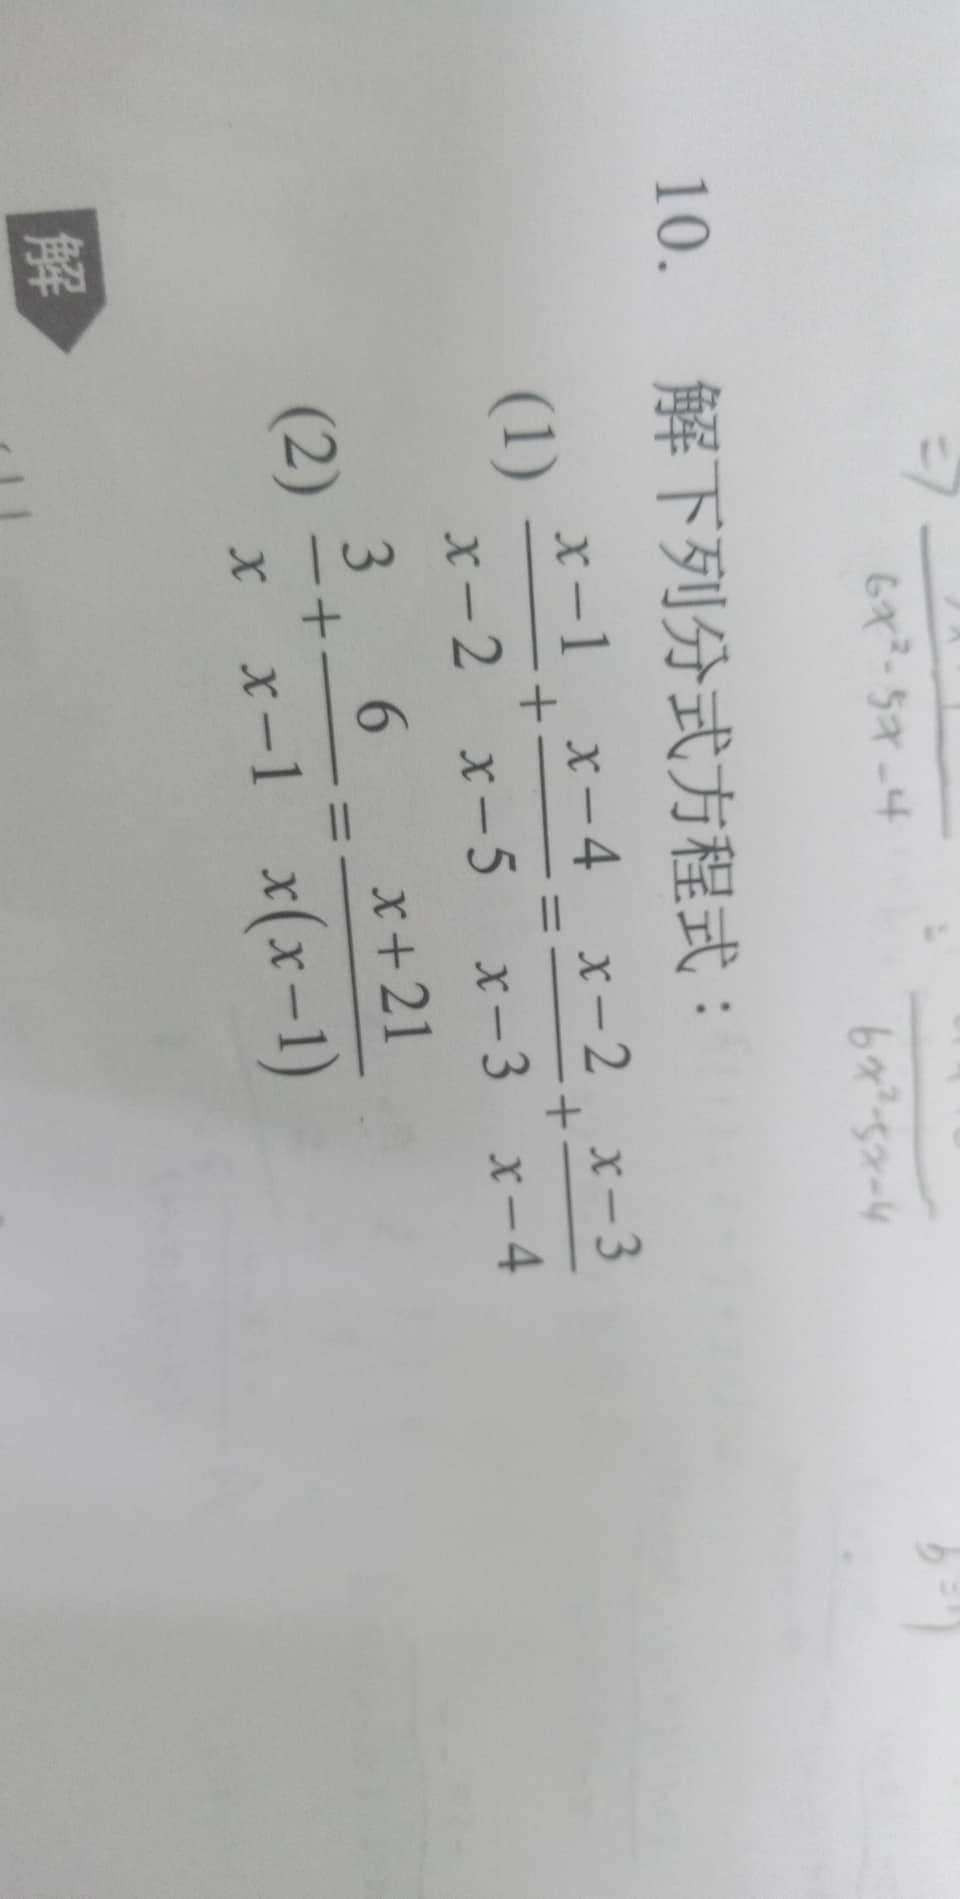 6x²-5x-4 6x²-5x-4
10. 解下列分式方程式：
(1) \frac{x-1}{x-2}+\frac{x-4}{x-5}=\frac{x-2}{x-3}+\frac{x-3}{x-4}
(2) \frac{3}{x}+\frac{6}{x-1}=\frac{x+21}{x(x-1)}
解